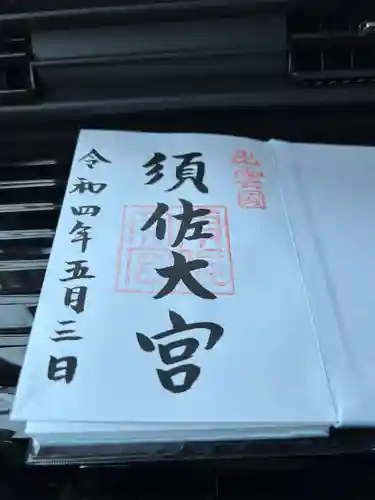 出雲國
須佐大宮
令和四年五月三日